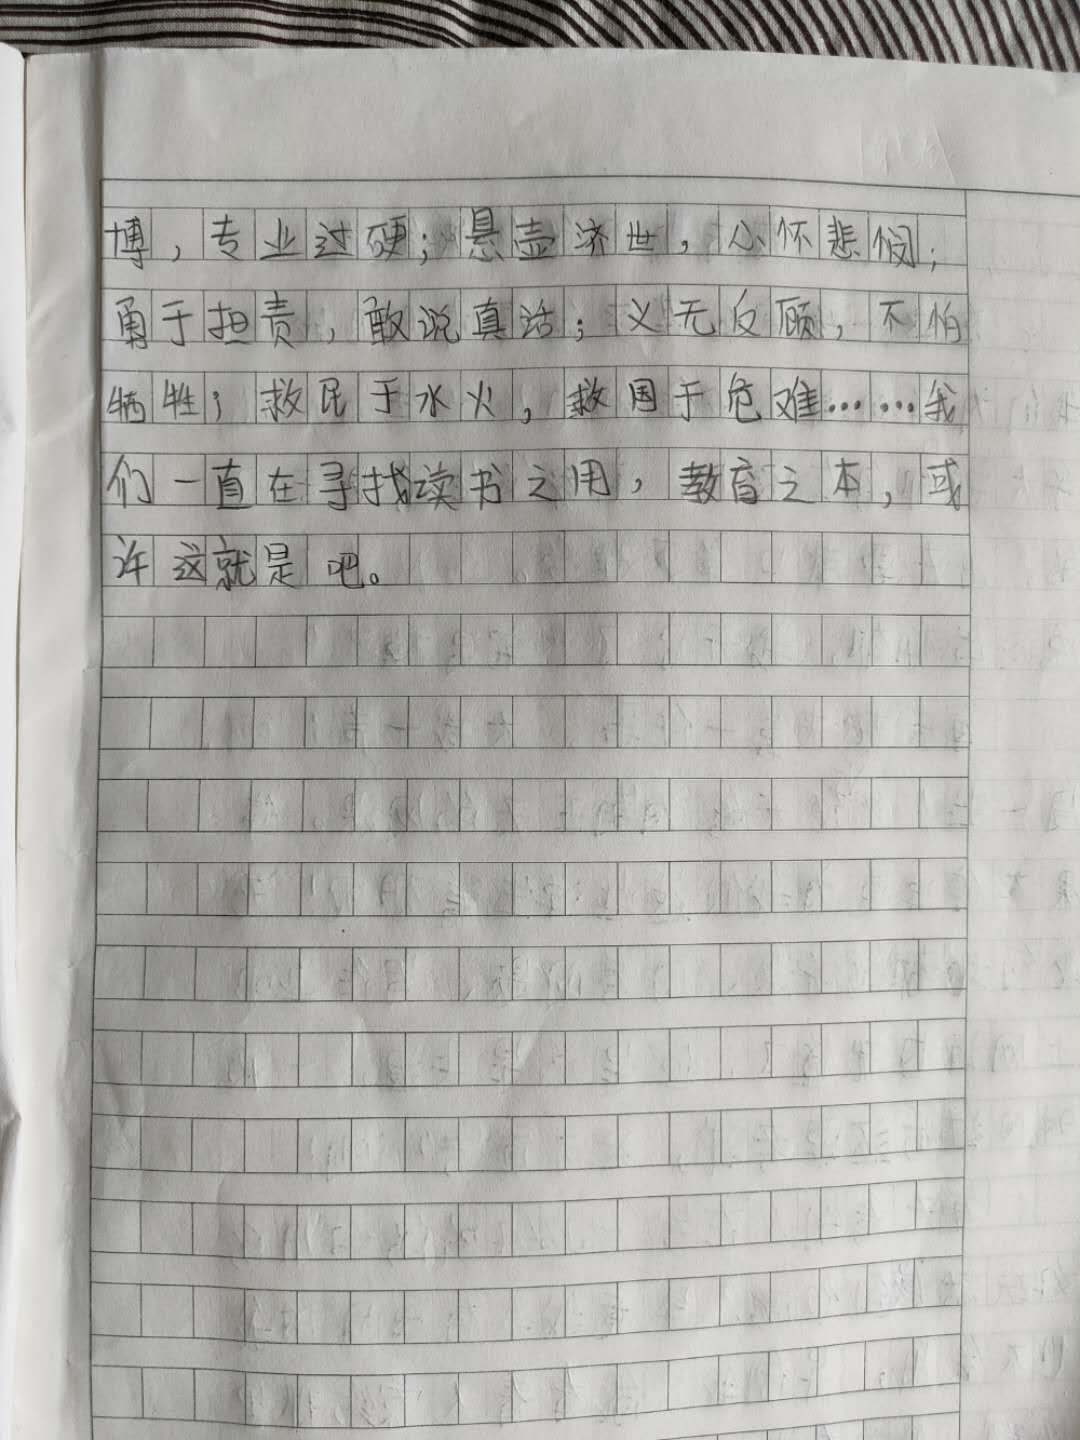 博，专业过硬；悬壶济世，心怀悲悯；
勇于担责，敢说真话；义无反顾，不怕
牺牲；救民于水火，救国于危难……我
们一直在寻找读书之用，教育之本，或
许这就是吧。